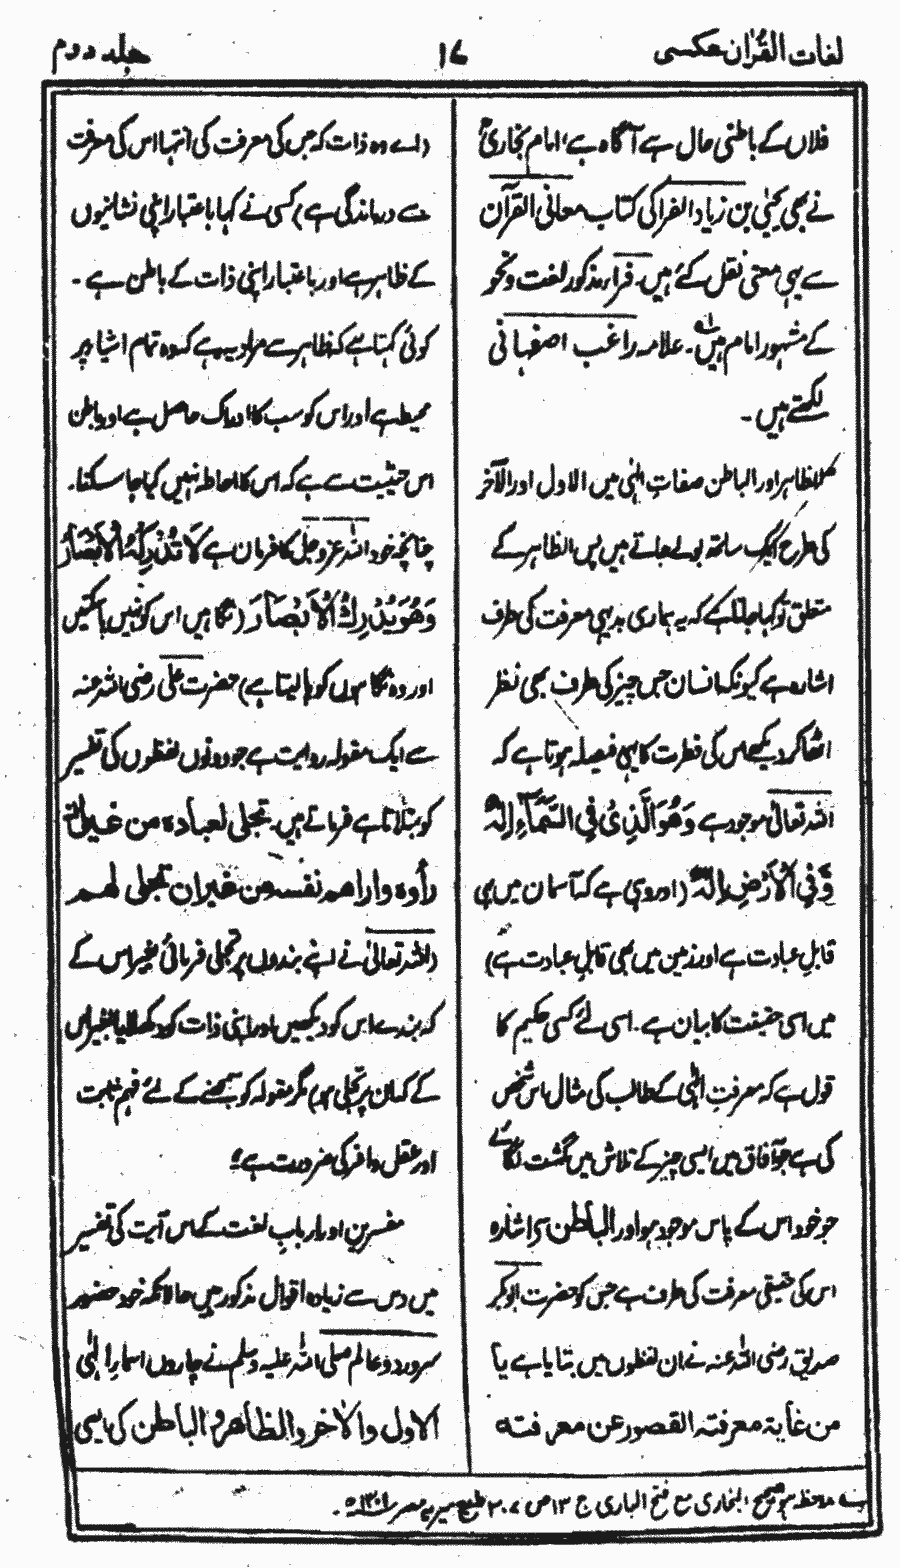 لغات القرآن عکسی
۱۷
جلد دوم
فلاں کے باطنی حال سے آگاہ ہے، امام بخاریؒ
نے بھی یحییٰ بن زیاد الفرا کی کتاب معانی القرآن
سے یہی معنی نقل کئے ہیں۔ فراء مذکور لغت و نحو
کے مشہور امام ہیں ۔ علامہ راغب اصفہانی
لکھتے ہیں ۔
ھوالظاہر اور الباطن صفات الٰہی میں الاول اور الآخر
کی طرح ایک ساتھ بولے جاتے ہیں پس الظاہر کے
متعلق تو کہا جاتا ہے کہ یہ ہماری بدیہی معرفت کی طرف
اشارہ ہے کیونکہ انسان جس چیز کی طرف بھی نظر
اٹھا کر دیکھے اس کی فطرت کا یہی فیصلہ ہوتا ہے کہ
اللہ تعالیٰ موجود ہے وَهُوَ الَّذِیْ فِی السَّمَآءِ اِلٰهٌ
وَّفِی الْاَرْضِ اِلٰهٌ (اور وہی ہے کہ آسمان میں بھی
قابلِ عبادت ہے اور زمین میں بھی قابلِ عبادت ہے)
میں اسی حقیقت کا بیان ہے۔ اسی لئے کسی حکیم کا
قول ہے کہ معرفتِ الٰہی کے طالب کی مثال اس شخص
کی ہے جو آفاق میں ایسی چیز کے تلاش میں گشت لگائے
جو خود اس کے پاس موجود ہو اور الباطن سے اشارہ
اس کی حقیقی معرفت کی طرف ہے جس کو حضرت ابوبکر
صدیق رضی اللہ عنہ نے ان لفظوں میں بتایا ہے یا
من غایة معرفته القصور عن معرفته
(اے وہ ذات کہ جس کی معرفت کی انتہا اس کی معرفت
سے درماندگی ہے) کسی نے کہا باعتبار اپنی نشانیوں
کے ظاہر ہے اور باعتبار اپنی ذات کے باطن ہے ۔
کوئی کہتا ہے کہ ظاہر سے مراد یہ ہے کہ وہ تمام اشیاء پر
محیط ہے اور اس کو سب کا ادراک حاصل ہے اور باطن
اس حیثیت سے ہے کہ اس کا احاطہ نہیں کیا جا سکتا۔
چنانچہ خود اللہ عزوجل کا فرمان ہے لَا تُدْرِكُهُ الْاَبْصَارُ
وَهُوَ يُدْرِكُ الْاَبْصَارَ (نگاہیں اس کو نہیں پا سکتیں
اور وہ نگاہوں کو پا لیتا ہے) حضرت علی رضی اللہ عنہ
سے ایک مقولہ روایت ہے جو دونوں لفظوں کی تفسیر
کو بتلاتا ہے فرماتے ہیں۔ تجلی لعبادہ من غیر ان
رأوہ واراھم نفسہ من غیر ان تجلی لھم
(اللہ تعالیٰ نے اپنے بندوں پر تجلی فرمائی بغیر اس کے
کہ بندے اس کو دیکھیں اور اپنی ذات کو دکھلایا بغیر اس
کے کہ ان پر تجلی ہو) مگر مقولہ کو سمجھنے کے لئے فہم ثابت
اور عقل وافر کی ضرورت ہے؛
مفسرین اور ارباب لغت کے اس آیت کی تفسیر
میں دس سے زیادہ اقوال مذکور ہیں حالانکہ خود حضور
سرور دو عالم صلی اللہ علیہ وسلم نے چاروں اسماء الٰہی
الاول والاخر والظاھر والباطن کی ایسی
ملاحظہ ہو صحیح البخاری مع فتح الباری ج ۱۳ ص ۳۰۷ طبع میریہ مصر ۱۳۰۱ھ ۔